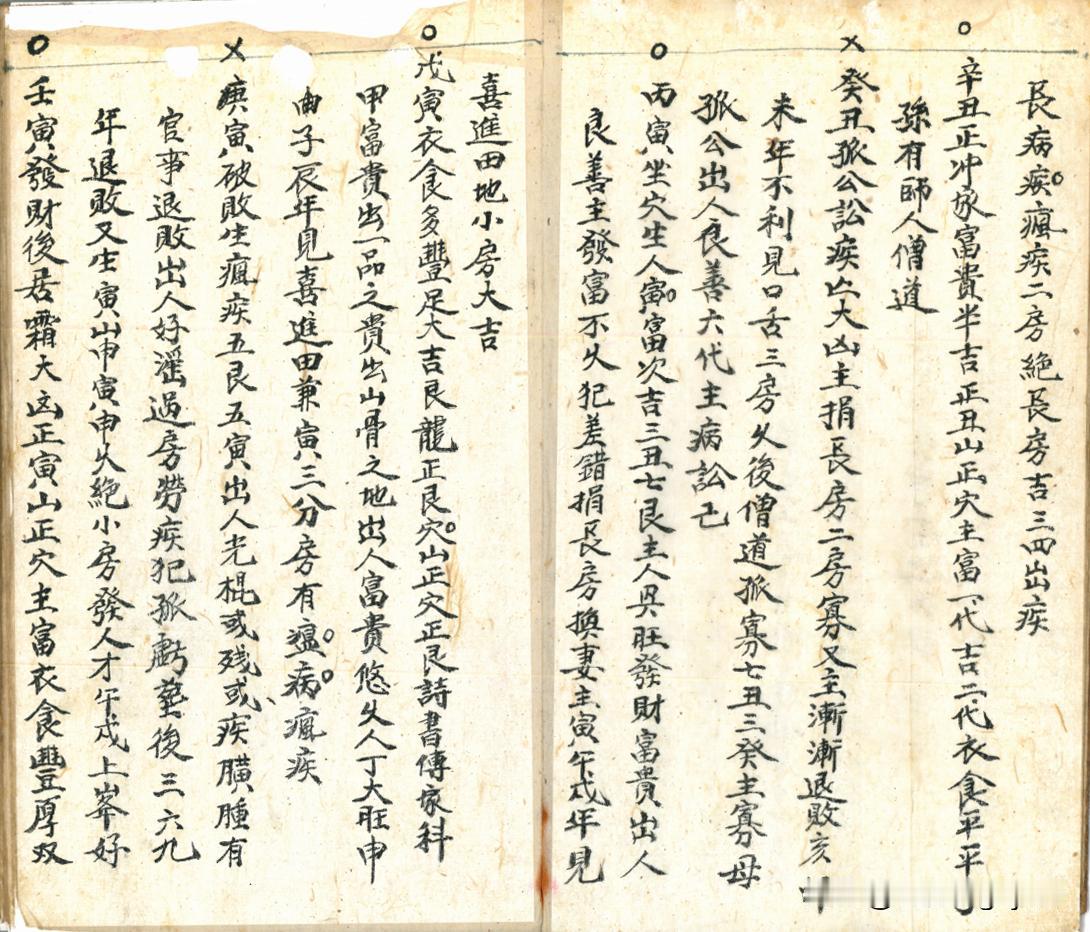 長病疾瘋疾二房絶長房吉三四出疾
辛丑正冲家富貴半吉正丑山正穴主富一代吉二代衣食平平
孫有師人僧道
癸丑孤公訟疾亡大凶主捐長房二房寡又主漸漸退敗亥
未年不利見口舌三房久後僧道孤寡七丑三癸主寡母
孤公出人良善六代主病訟己
丙寅坐穴生人寅富次吉三丑七艮主人興旺發財富貴出人
良善主發富不久犯差錯捐長房換妻主寅午戌年見
喜進田地小房大吉
戊寅衣食多豐足大吉艮龍正艮穴山正穴正艮詩書傳家科
甲富貴出一品之貴出山骨之地出人富貴悠久人丁大旺申
子辰年見喜進田兼寅三分房有瘟病瘋疾
庚寅破敗生瘋疾五艮五寅出人光棍或残或疾䐵腫有
官事退敗出人好滛過房勞疾犯孤虧塟後三六九
年退敗又生寅山申寅申久絶小房發人才午戌上峯好
壬寅發財後居霜大凶正寅山正穴主富衣食豐厚双